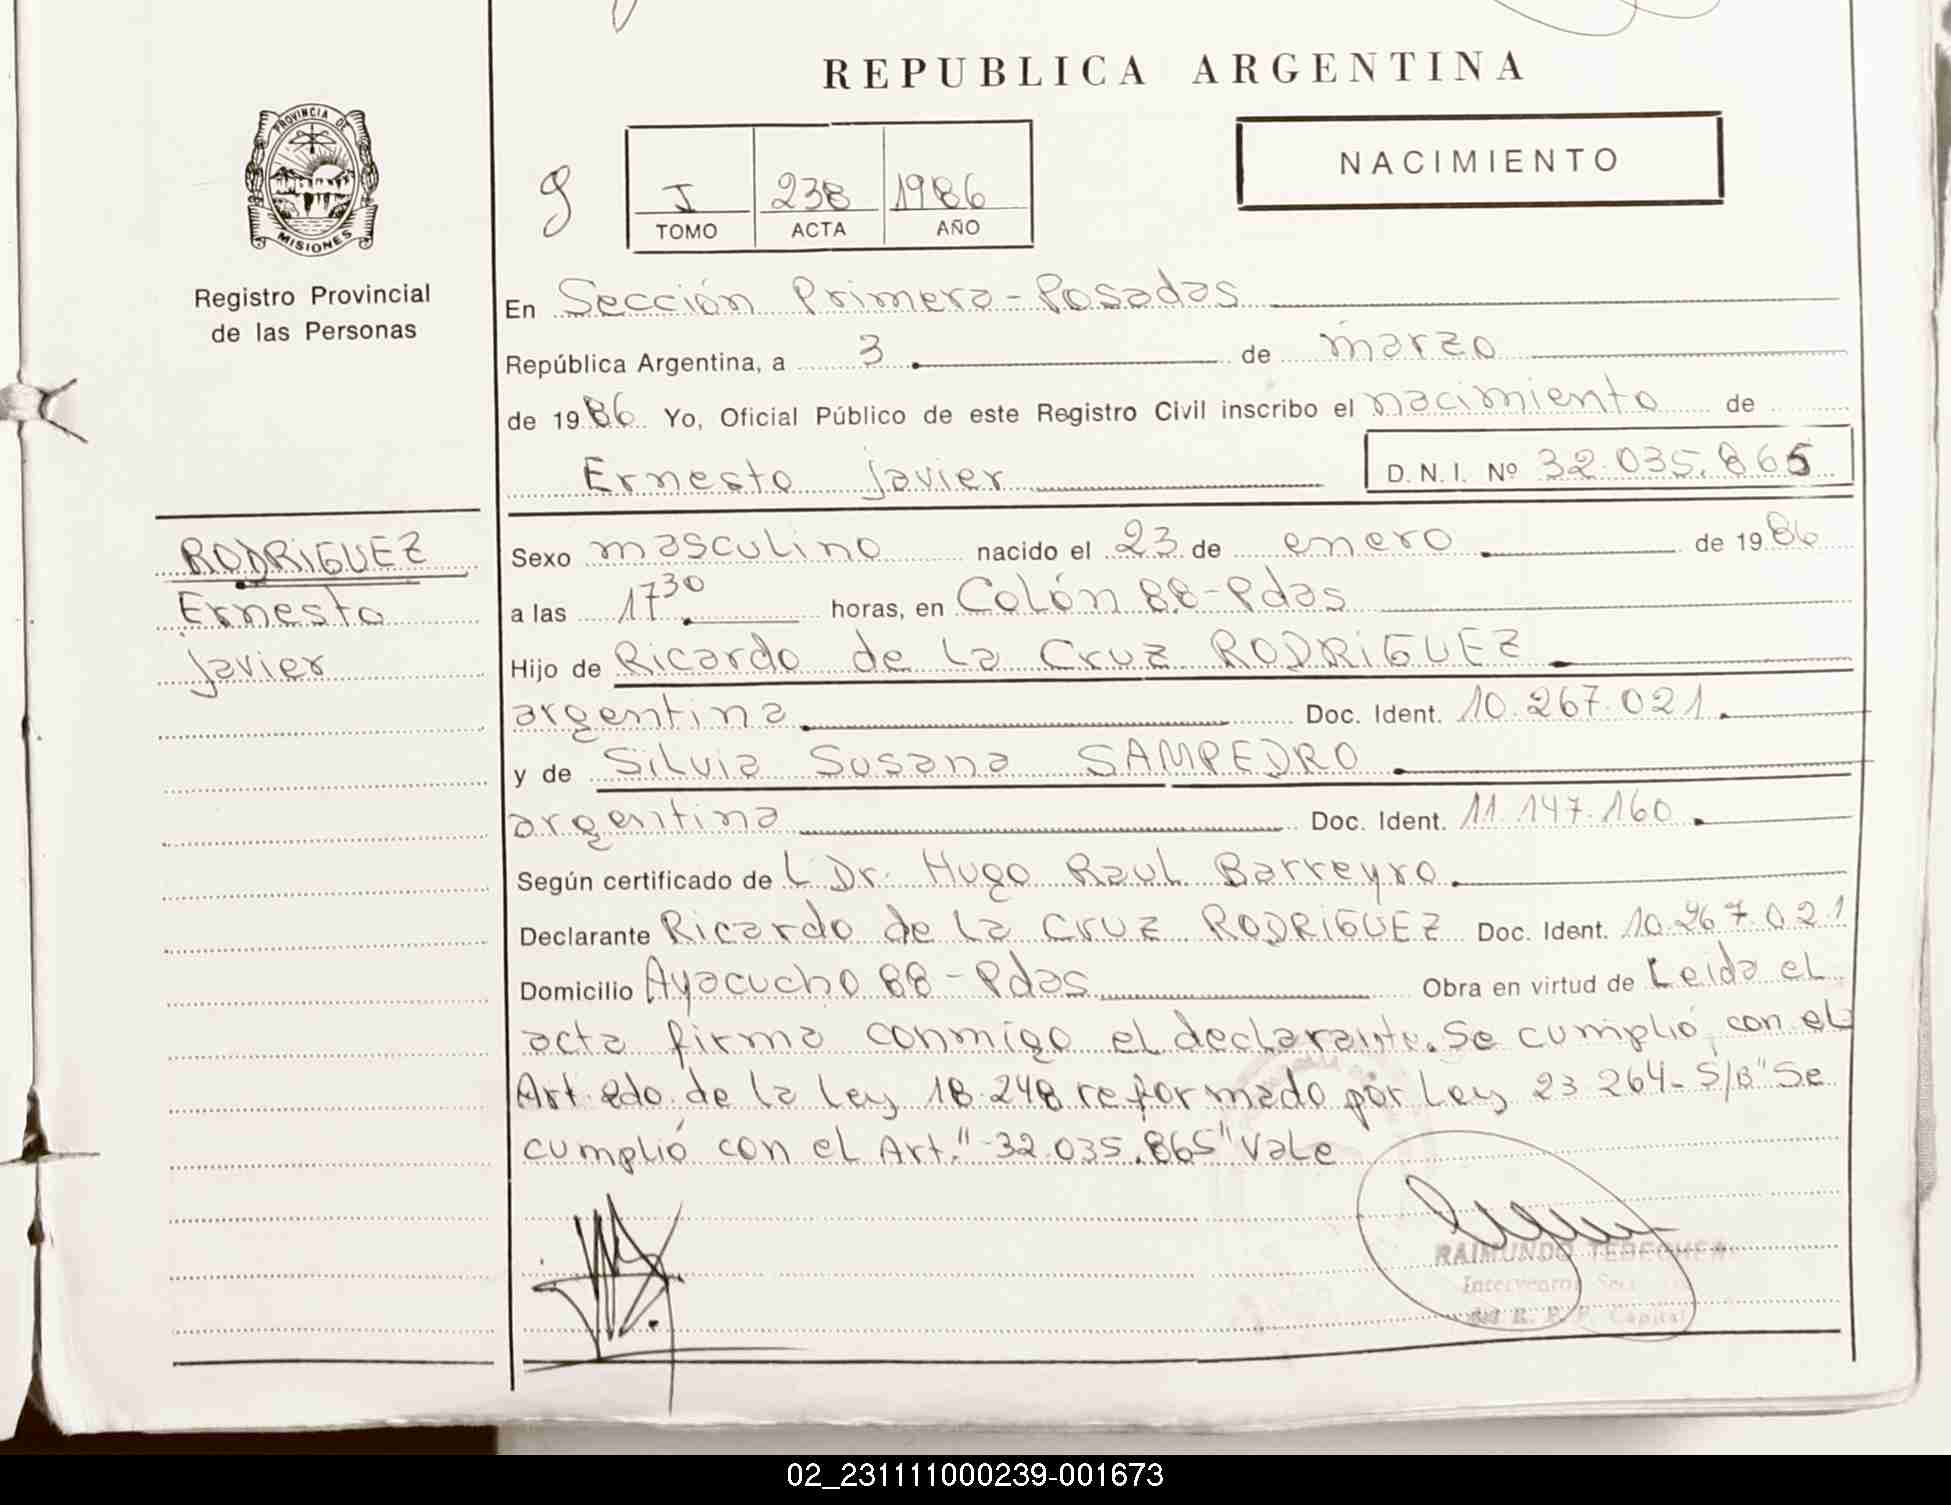 REPUBLICA ARGENTINA
PROVINCIA DE
MISIONES
Registro Provincial
de las Personas
I 238 1986
TOMO ACTA AÑO
NACIMIENTO
En Sección Primera-Posadas
República Argentina, a 3 de marzo
de 1986 Yo, Oficial Público de este Registro Civil inscribo el nacimiento de
Ernesto Javier D. N. I. Nº 32.035.865
RODRIGUEZ
Ernesto
Javier
Sexo masculino nacido el 23 de enero de 1986
a las 17 30 horas, en Colón 88-Pdas
Hijo de Ricardo de la Cruz RODRIGUEZ
argentina Doc. Ident. 10.267.021
y de Silvia Susana SAMPEDRO
argentina Doc. Ident. 11.147.160
Según certificado de L Dr. Hugo Raul Barreyro
Declarante Ricardo de la Cruz RODRIGUEZ Doc. Ident. 10.267.021
Domicilio Ayacucho 88-Pdas Obra en virtud de Leida el
acta firma conmigo el declarante. Se cumplió con el
Art. 2do. de la Ley 18.248 reformado por Ley 23 264- S/B "Se
cumplió con el Art." -32.035.865" Vale
RAIMUNDO
Interventor
del R. P. P. Capital
02_231111000239-001673